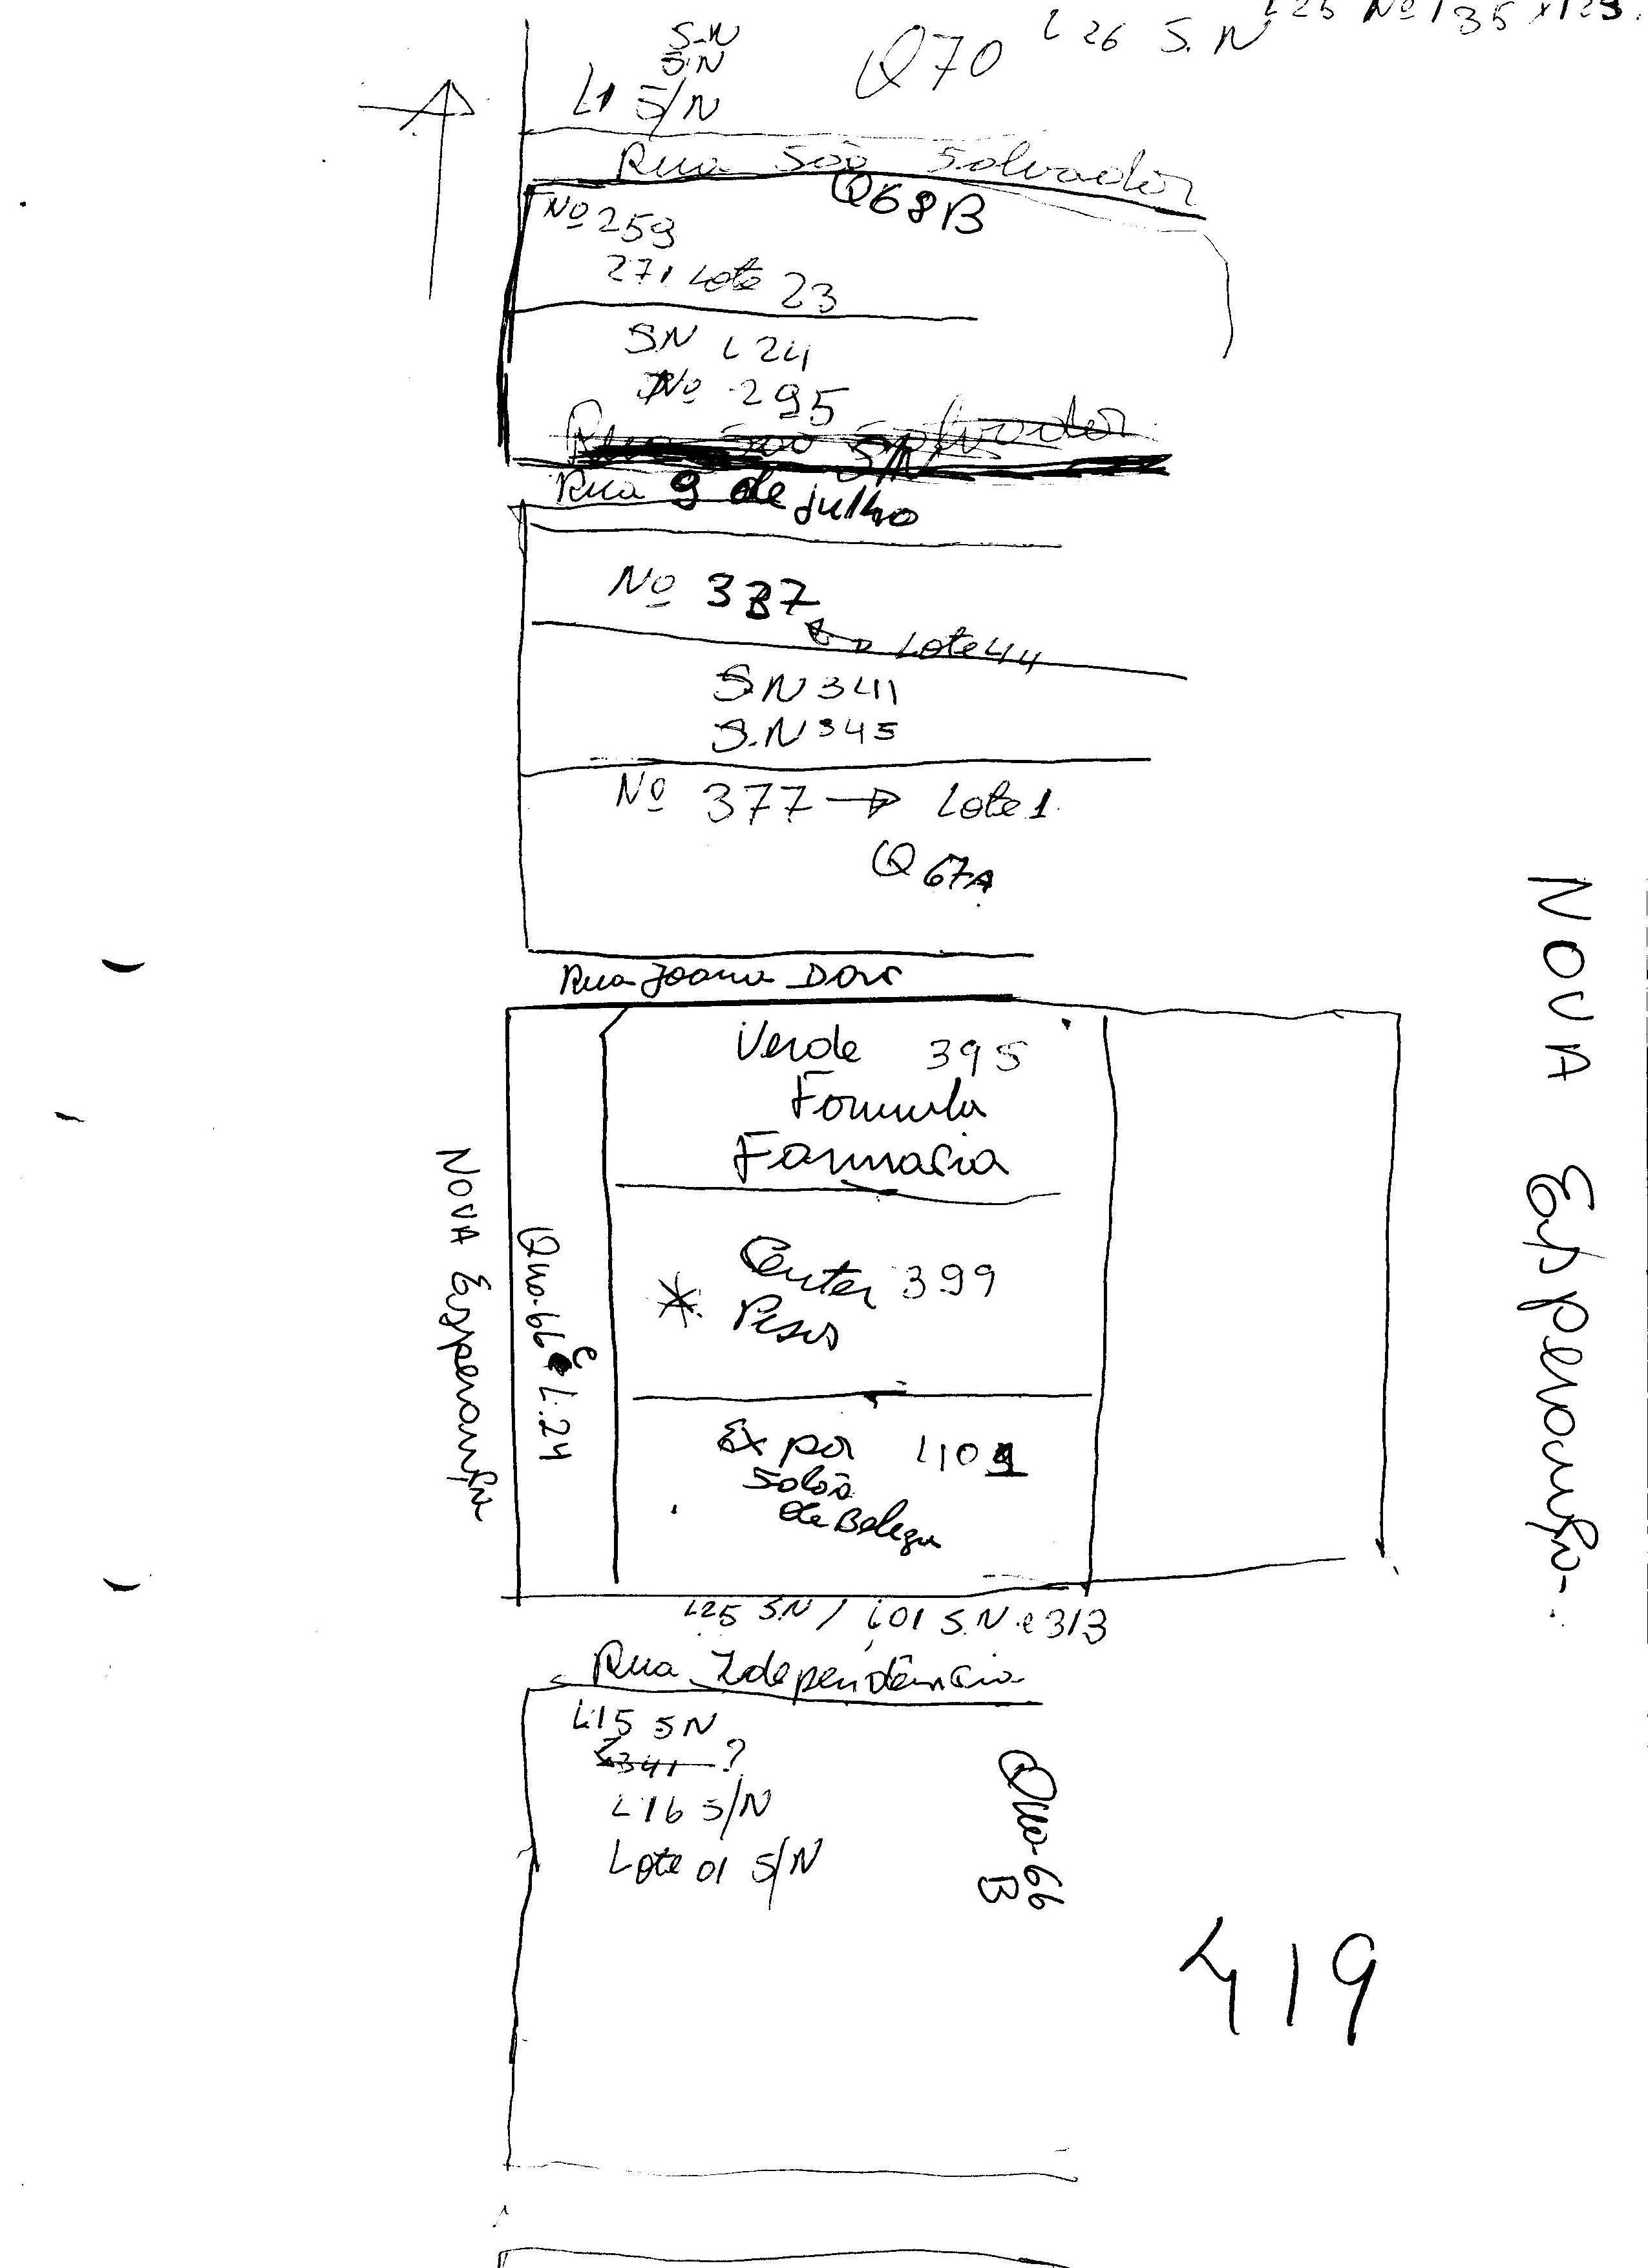 L25 Nº 135 x 129.
L26 S.N
Q70
S-N
S.N
L1 S/N
Rua São Salvador
Q68B
Nº 259
271 Lote 23
SN L24
Nº 295
Rua São Salvador
S/N
Rua 9 de julho
Nº 337
Lote 44
S.N 341
S.N 345
Nº 377 → Lote 1
Q 67A
Rua Joana Darc
Verde 395
Formula
Farmacia
Center 399
Pisos
Ex por 401
Salão
de Beleza
Qua-66 E L.24
NOVA Esperança
NOVA Esperança-
L25 S.N / L01 S.N e 313
Rua Idependência
L15 SN
L341 ?
L16 S/N
Lote 01 S/N
Qua-66
B
419